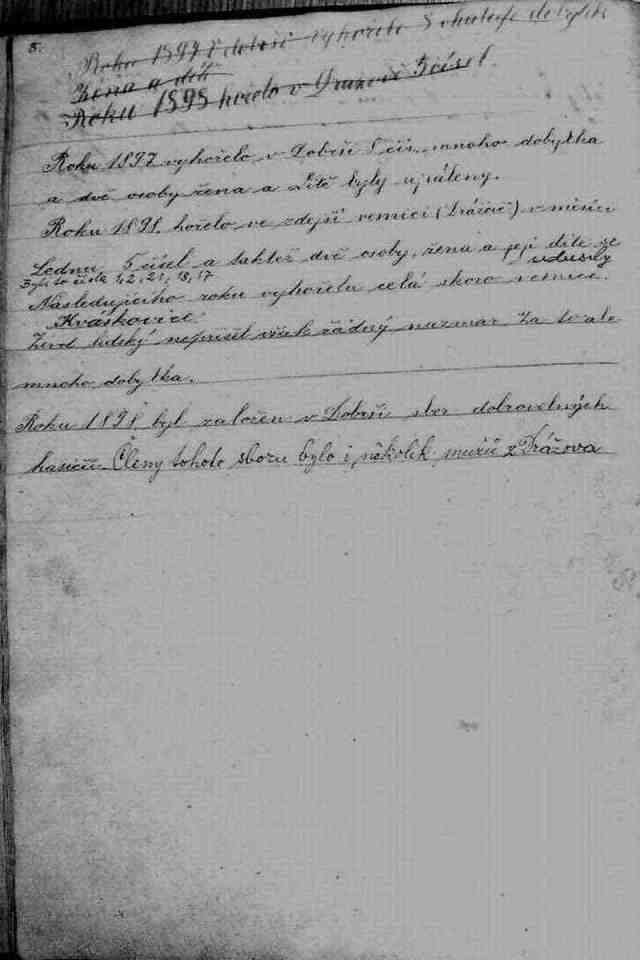 8.
Roku 1897 v dobrši vyhořelo 5 dobytek
žena a dítě
Roku 1898 hořelo v Dražově 5 čísel
Roku 1897 vyhořelo v Dobrši 5 čís. mnoho dobytka
a dvě osoby žena a dítě byly upáleny.
Roku 1898 hořelo ve zdejší vesnici (Drážově) v měsíci
Lednu 5 čísel a taktéž dvě osoby, žena a její dítě se
Byla to čísla 12, 21, 13, 17 udusily
Následujícího roku vyhořela celá skoro vesnice.
Kváskovice
Život lidský nepřišel však žádný nazmar Za to ale
mnoho dobytka.
Roku 1898 byl založen v Dobrši sbor dobrovolných
hasičů. Členy tohoto sboru bylo i několik mužů z Drážova